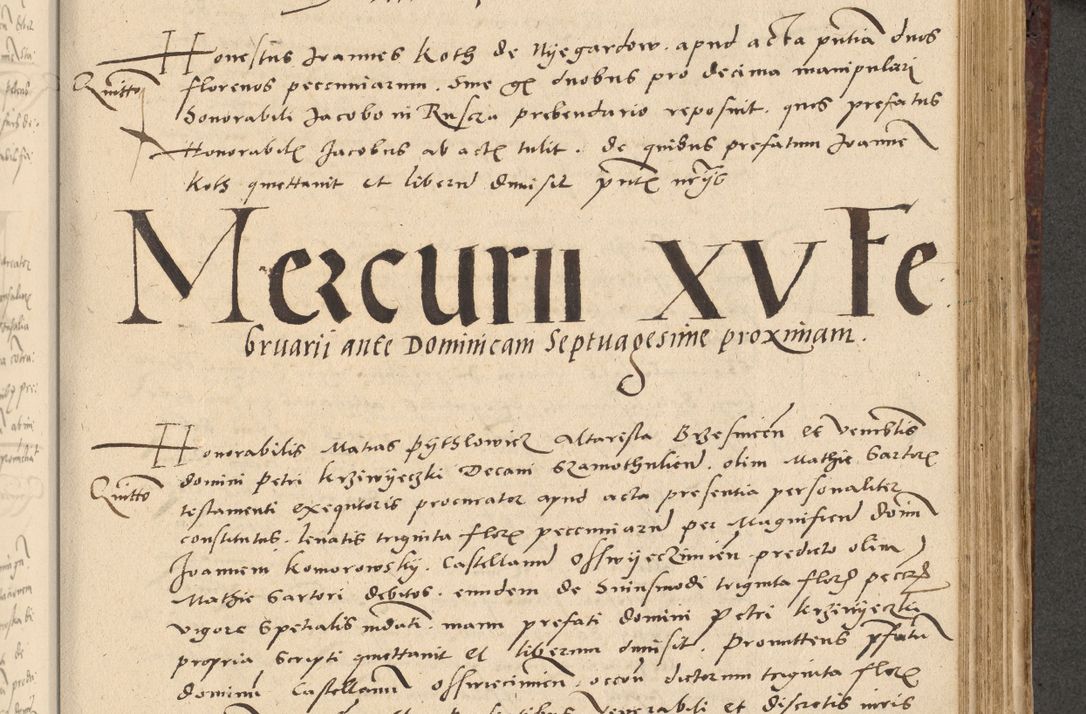 Honestus Joannes Koth de Nyegardow. apud acta pntia duos
Quitto florenos pecuniarum. sive gr duobus pro decima manipulari
Honorabili Jacobo in Ruscza prebendario reposuit. quos prefatus
Honorabilis Jacobus ab actis tulit. de quibus prefatum Joannem
Koth quittauit et liberum dimisit pntis
Mercurii XV Fe
bruarii ante Dominicam Septuagesime proximam.
Honorabilis Matias Altarista Brzesinen et Venerabilis
domini Petri Krziwyeczki Decani Szamothulien. olim Mathie Sartoris
Quitto testamenti exequtoris procurator apud acta presentia personaliter
constitutus. leuatis triginta flor pecuniarum per Magnificum domin
Joannem Komorowsky. Castellanum Osswyeczimien. predicto olim
Mathie Sartori debitos. eundem de huiusmodi triginta flor pecc
vigore Spetialis mdati. manu prefati domini Petri Krziwyeczki
propria Scripti quittauit et liberum dimisit. Promittens pfatu
dominum Castellanum Osswiecimen. occon dictorum triginta flor
Venerabili et discretis viris